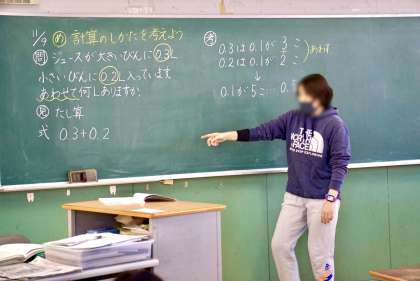 11/9 め 計算のしかたを考えよう
問 ジュースが大きいびんに0.3L
小さいびんに0.2L入っています
あわせて何Lありますか。
たし算
式 0.3+0.2
考
0.3は0.1が3こ
0.2は0.1が2こ
あわす
↓
0.1が5こ…0.5
THE
NORTH
FACE